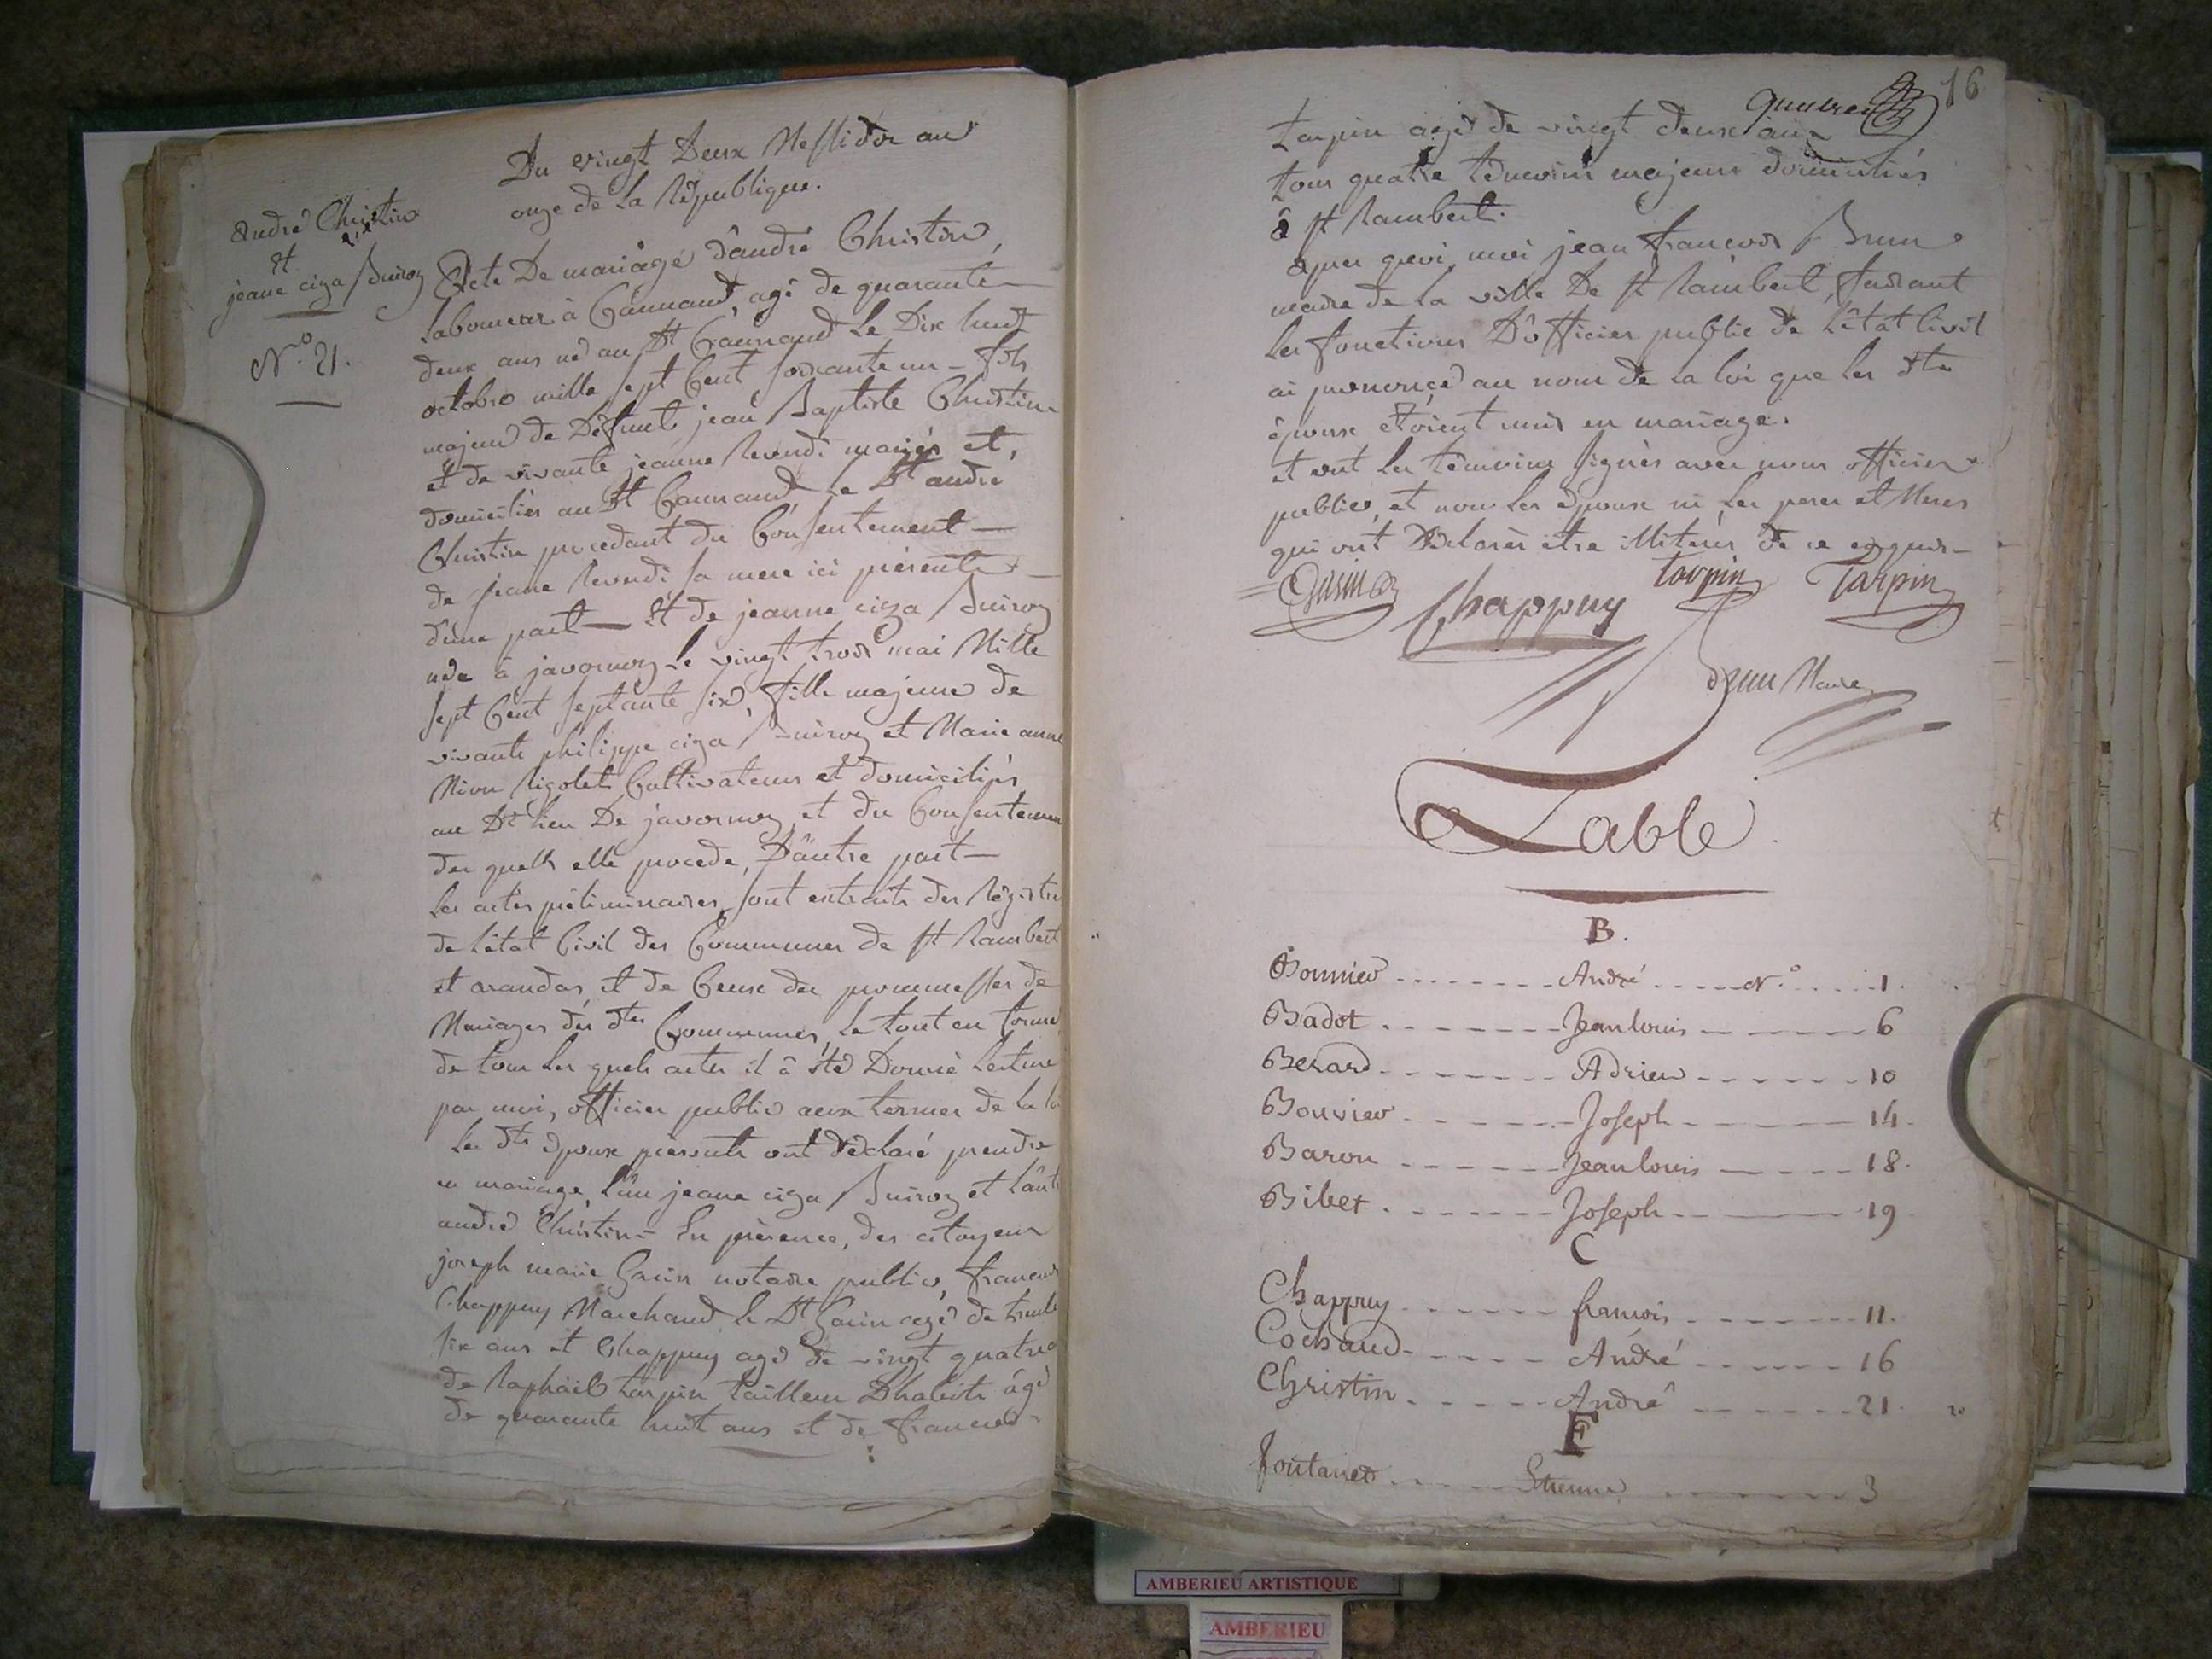 Du vingt Deux Messidor an
onze de la République.
andré Christin
et
jeane ciza Buiroz
N.º 21.
Acte De mariage d'andré Christin,
laboureur à agé de quarante
deux ans né au Dt le Dix huit
octobre mille sept Cent soixante un - fils
majeur de Défunt jean Baptiste Christin
et de vivante jeanne mariés et,
domiciliés au Dt le Dt andré
Christin procedant du Consentement —
de jeane sa mere ici présente —
d'une part — Et de jeanne ciza Buiroz
née à javornoz le vingt trois mai Mille
sept Cent septante six, fille majeure de
vivants philippe ciza Buiroz et Marie anne
Rigolet Cultivateurs et domiciliés
au Dt lieu De javornoz, et du Consentement
des quels elle procede, D'autre part —
les actes préliminaires, sont extraits des Régistres
de l'état Civil des Communes de St Rambert
et arandas, et de Ceux des prommesses de
Mariages des dtes Communes, le tout en forme
de tous les quels actes il à été Donné lecture
par moi, officier public aux termes de la loi
les dts époux présents ont déclaré prendre
en mariage, l'un jeane ciza Buiroz et l'autre
andré Christin = En présence, des citoyens
joseph marie Garin notaire public, francois
Chappuy Marchand le Dt Garin agé de trente
six ans et Chappuy agé de vingt quatre
de Raphaël tarpin tailleur D'habits âgé
de quarante huit ans et de francois
16
tarpin agé de vingt deux ans
tous quatre témoins majeurs domiciliés
à St Rambert.
après quoi, moi jean francois Brun
maire de la ville De St Rambert, faisant
les fonctions D'officier public de l'état Civil
ai prononçé au nom de la loi que les dts
époux étoient unis en mariage.
et ont les témoins signés avec nous officier
public, et non les époux ni les peres et Meres
qui ont Déclarés être illiterés de ce enquis —
Garin Chappuy tarpin Tarpin
Brun Maire
Table
B.
Bonnier André N.º 1.
Badot Jean louis 6
Berard Adrien 10
Bouvier Joseph 14.
Baron Jean louis 18.
Bibet Joseph 19
C
Chappuy francois 11.
Cochaud André 16
Christin André 21.
F
fontanet Etienne 3
AMBERIEU ARTISTIQUE
AMBERIEU